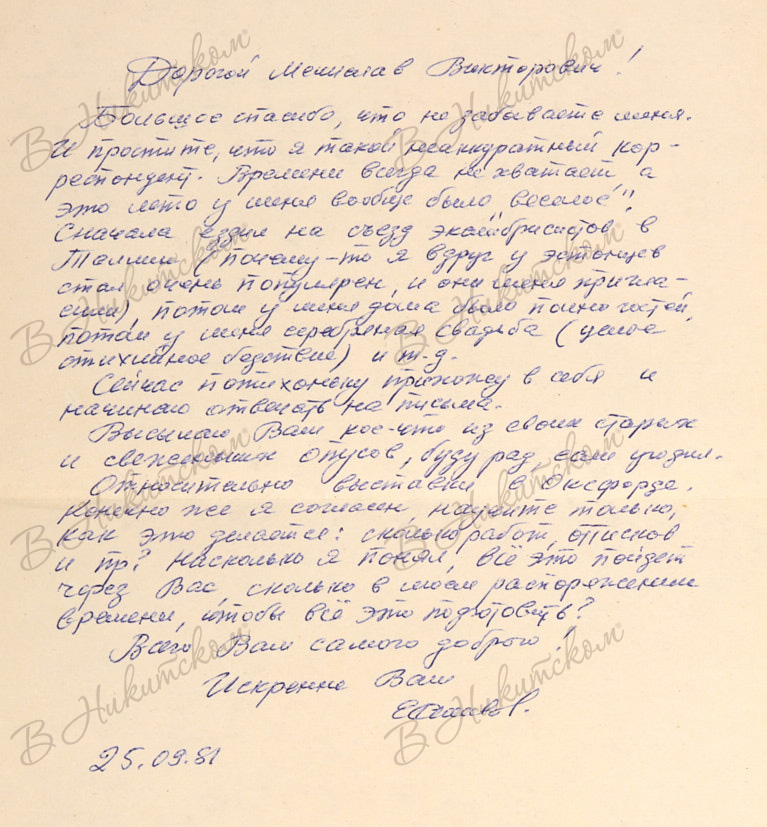 Дорогой Мечислав Викторович!
Большое спасибо, что не забываете меня.
И простите, что я такой неаккуратный кор-
респондент. Времени всегда не хватает, а
это лето у меня вообще было "веселое".
Сначала ездил на съезд экслибристов в
Таллин (почему-то я вдруг у эстонцев
стал очень популярен, и они меня пригла-
сили), потом у меня дома было полно гостей,
потом у меня серебряная свадьба (целое
стихийное бедствие) и т.д.
Сейчас потихоньку прихожу в себя и
начинаю отвечать на письма.
Высылаю Вам кое-что из своих старых
и свеженьких опусов, буду рад, если угодил.
Относительно выставки в Оксфорде.
Конечно же я согласен, научите только,
как это делается: сколько работ, оттисков
и пр? Насколько я понял, всё это пойдет
через Вас, сколько в моем распоряжении
времени, чтобы всё это подготовить?
Всего Вам самого доброго!
Искренне Ваш
25.09.81
В Никитском